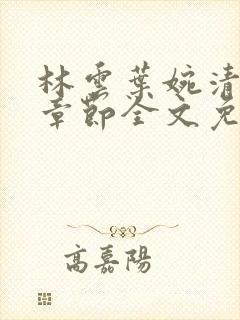 林雲葉婉清
章節全文免
高嘉陽